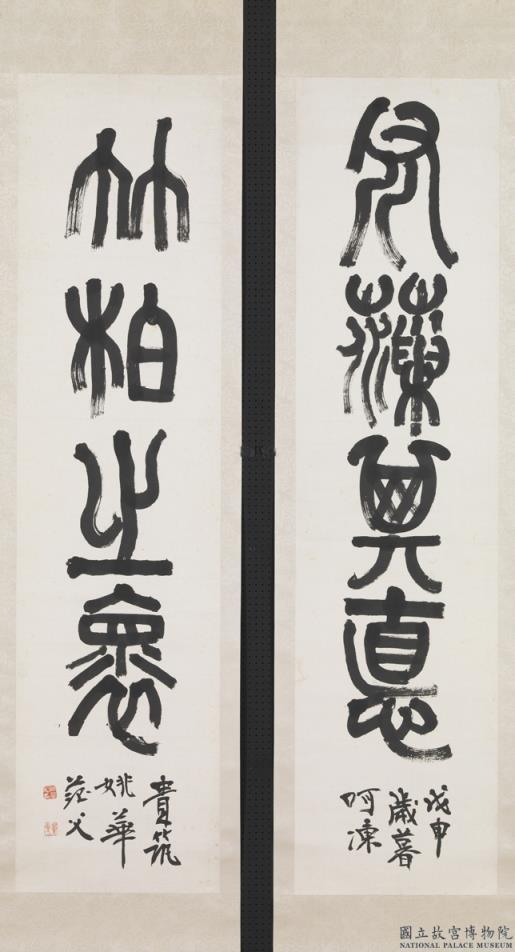 其悳
戊申
歲暮
呵凍
竹柏之褱
貴筑
姚華
茫父
國立故宮博物院
NATIONAL PALACE MUSEUM